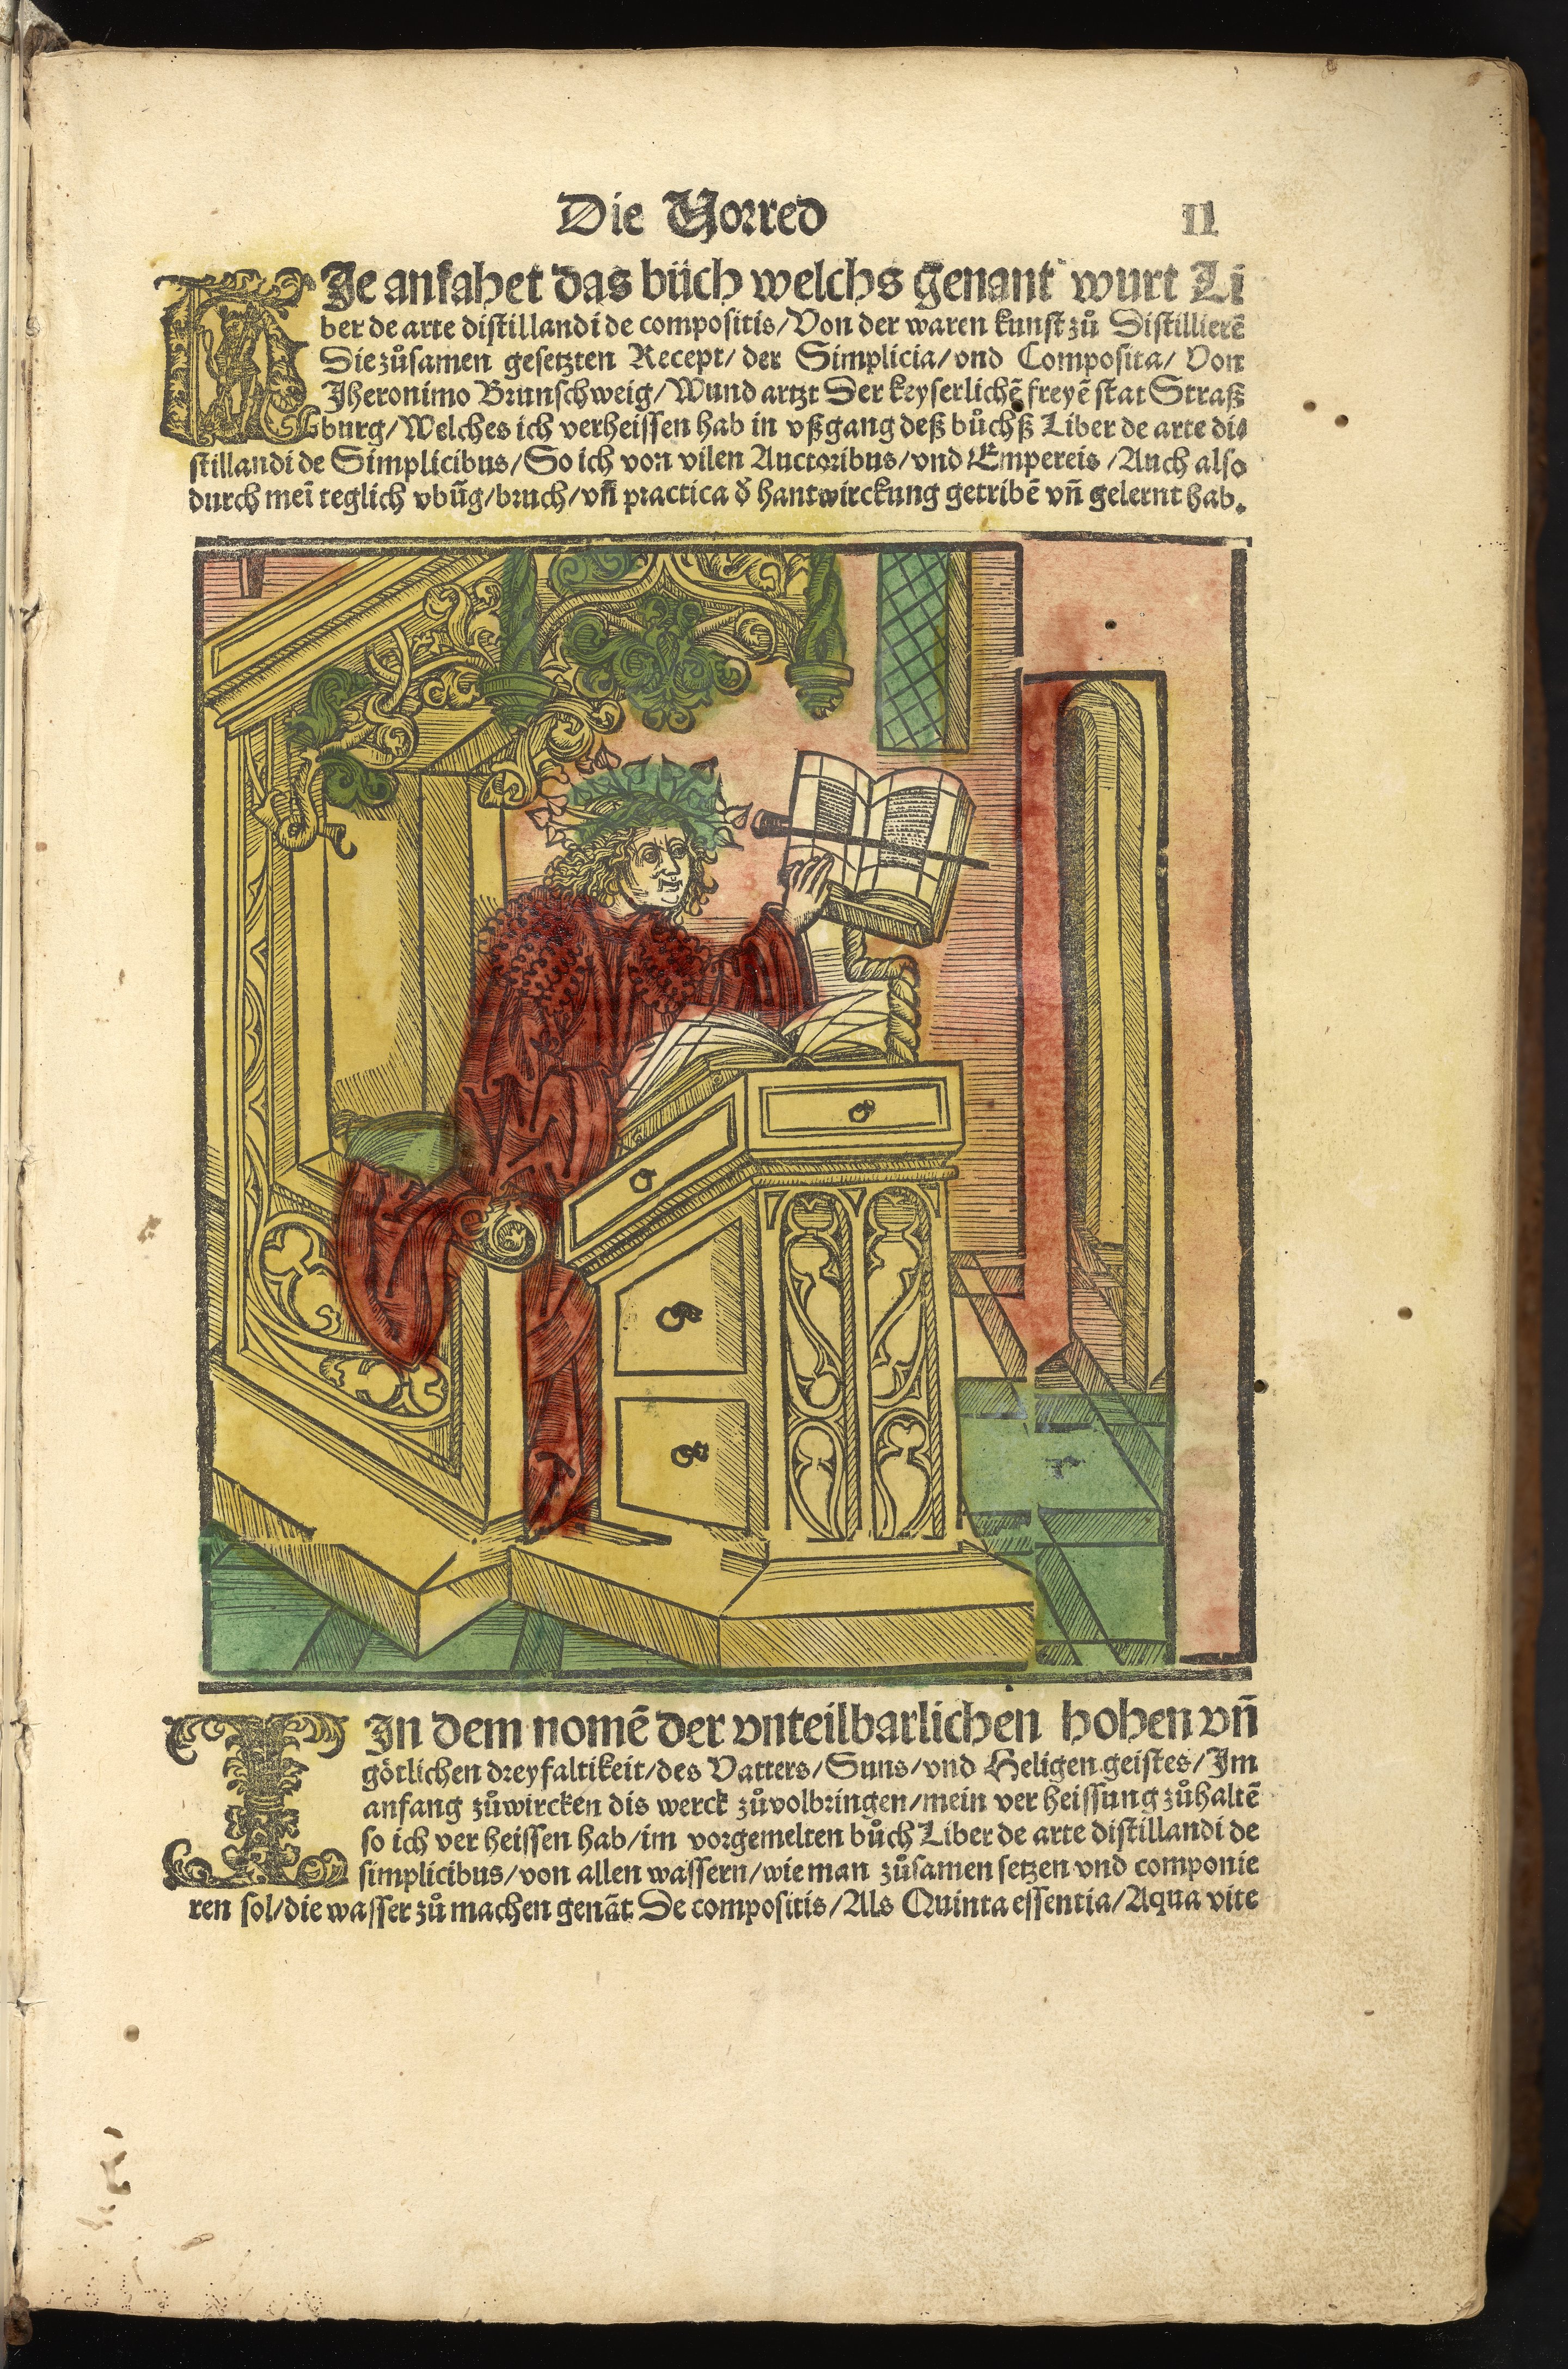 Die Vorred
II
HIe anfahet das bůch welchs genant wurt Li
ber de arte distillandi de compositis/Von der waren kunst zů Distillierē
Die zůsamen gesetzten Recept/ der Simplicia/vnd Composita/ Von
Jheronimo Brunschweig/Wund artzt Der keyserlichē freyē stat Straß
burg/Welches ich verheissen hab in vßgang deß bůchß Liber de arte di⸗
stillandi de Simplicibus/So ich von vilen Auctoribus/vnd Empereis/Auch also
durch meī teglich vbūg/bruch/vñ practica ð hantwirckung getribē vñ gelernt hab.
IIn dem nomē der vnteilbarlichen hohen vñ
götlichen dreyfaltikeit/des Vatters/Suns/vnd Heligen geistes/Im
anfang zůwircken dis werck zůvolbringen/mein ver heissung zůhaltē
so ich ver heissen hab/im vorgemelten bůch Liber de arte distillandi de
simplicibus/von allen wassern/wie man zůsamen setzen vnd componie
ren sol/die wasser zů machen genāt De compositis/Als Quinta essentia/Aqua vite